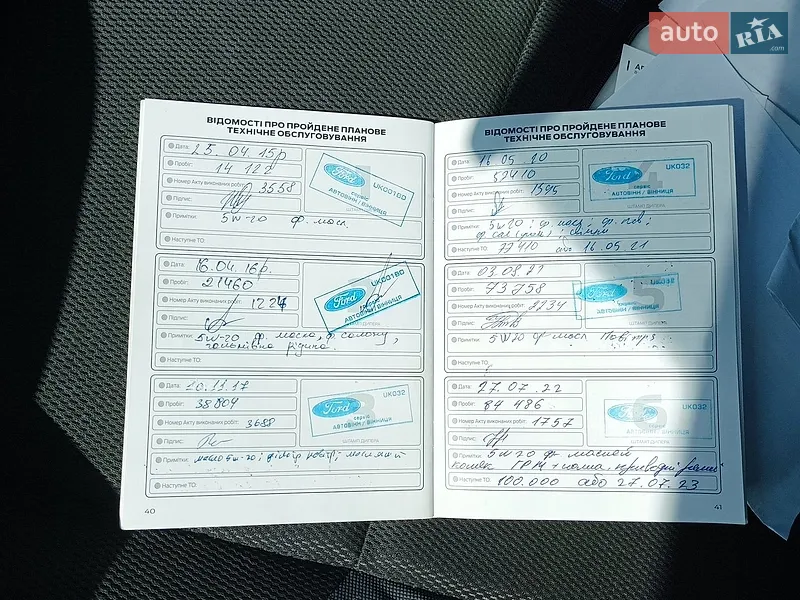 auto RIA .com
ВІДОМОСТІ ПРО ПРОЙДЕНЕ ПЛАНОВЕ
ТЕХНІЧНЕ ОБСЛУГОВУВАННЯ
Дата: 25.04.15р
Пробіг: 14 122
Номер Акту виконаних робіт: 3558
Підпис:
Примітки: 5W-20 ф. масл.
Наступне ТО:
1
Ford UK001BD
сервіс
АВТОВІНН / ВІННИЦЯ
ШТАМП ДИЛЕРА
Дата: 16.04.16р.
Пробіг: 27460
Номер Акту виконаних робіт: 1224
Підпис:
Примітки: 5W-20 ф. масла, ф. салону,
гальмівна рідина.
Наступне ТО:
Ford UK001BD
сервіс
АВТОВІНН / ВІННИЦЯ
ШТАМП ДИЛЕРА
Дата: 10.11.17
Пробіг: 38804
Номер Акту виконаних робіт: 3688
Підпис:
Примітки: масло 5w-20; фільтр повітр;
Наступне ТО:
3
Ford UK032
сервіс
АВТОВІНН / ВІННИЦЯ
ШТАМП ДИЛЕРА
40
ВІДОМОСТІ ПРО ПРОЙДЕНЕ ПЛАНОВЕ
ТЕХНІЧНЕ ОБСЛУГОВУВАННЯ
Дата: 16 05 20
Пробіг: 57410
Номер Акту виконаних робіт: 1595
Підпис:
Примітки: 5W20; ф. масл; ф. пов;
Наступне ТО: 77410 або 16.05.21
4
Ford UK032
сервіс
АВТОВІНН / ВІННИЦЯ
ШТАМП ДИЛЕРА
Дата: 03.08.21
Пробіг: 73758
Номер Акту виконаних робіт: 2234
Підпис:
Примітки: 5W20 ф масл Повітря
Наступне ТО:
5
Ford UK032
сервіс
АВТОВІНН / ВІННИЦЯ
ШТАМП ДИЛЕРА
Дата: 27.07.22
Пробіг: 84 486
Номер Акту виконаних робіт: 1757
Підпис:
Примітки: 5w-20 фр масляний
комек ГРМ + помпа, приводні
Наступне ТО: 100.000 або 27.07.23
6
Ford UK032
сервіс
АВТОВІНН / ВІННИЦЯ
ШТАМП ДИЛЕРА
41